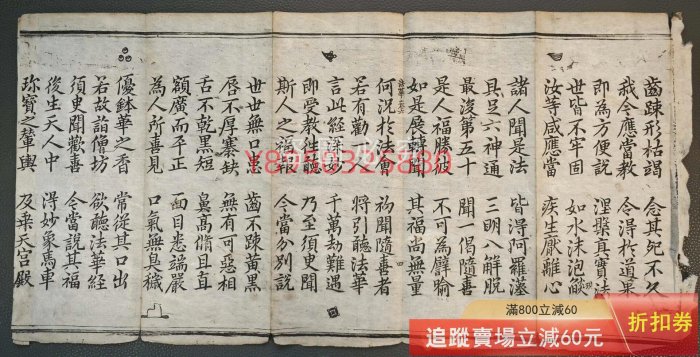 齒踈形枯竭 念其死不久
我今應當教 令得於道果
即為方便說 涅槃真實法
世皆不牢固 如水沫泡燄
汝等咸應當 疾生厭離心
諸人聞是法 皆得阿羅漢
具足六神通 三明八解脫
最後第五十 聞一偈隨喜
是人福勝彼 不可為譬喻
如是展轉聞 其福尚無量
何況於法會 初聞隨喜者
若有勸一人 將引聽法華
言此經深妙 千萬劫難遇
即受教往聽 乃至須臾聞
斯人之福報 今當分別說
世世無口患 齒不踈黃黑
唇不厚褰缺 無有可惡相
舌不乾黑短 鼻高脩且直
額廣而平正 面目悉端嚴
為人所喜見 口氣無臭穢
優鉢華之香 常從其口出
若故詣僧坊 欲聽法華經
須臾聞歡喜 今當說其福
後生天人中 得妙象馬車
珍寶之輦輿 及乘天宮殿
滿800立減60
追蹤賣場立減60元
折扣券